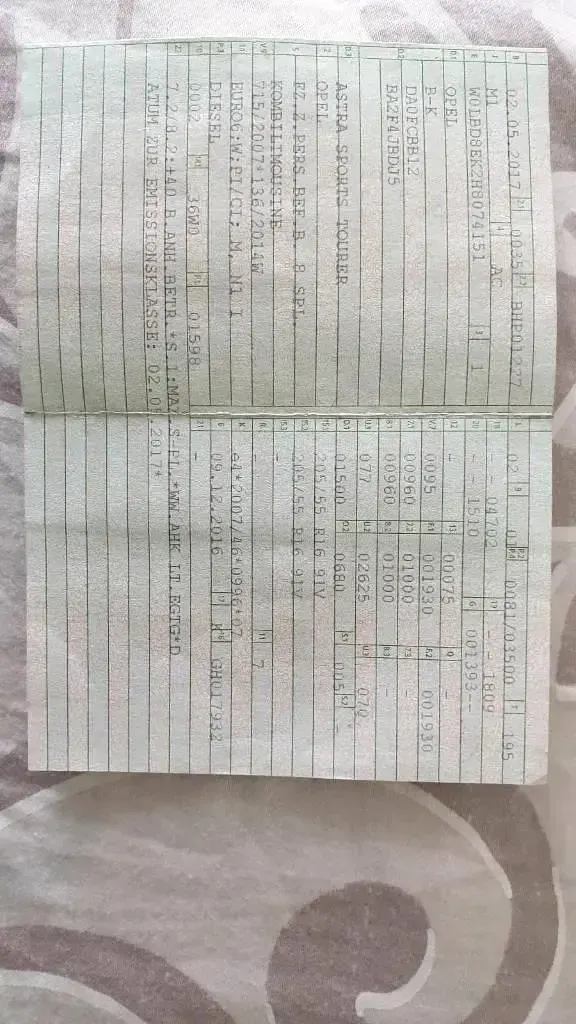 B 02.05.2017 2.1 0035 2.2 BHP01277
J M1 4 AC
E W0LBD8EK2H8074151 3 1
D.1 OPEL
B-K
D.2 DA0FCBB12
BA2F4JBDJ5
D.3 ASTRA SPORTS TOURER
2 OPEL
5 EZ.Z.PERS.BEF.B. 8 SPL.
KOMBILIMOUSINE
V.9 715/2007*136/2014W
14 EURO6;W;PI/CI; M, N1 I
P.3 DIESEL
10 0002 14.1 36W0 P.1 01598
22 7.2/8.2:+40 B.ANH.BETR.*S.1: *WW.AHK LT.EGTG*D
ATUM ZUR EMISSIONSKLASSE: 2017*
L 02 9 P.2 P.4 0081/03500 T 195
18 - - 04702 19 - - 1809
20 - - 1510 G 001393--
12 - 13 00075 Q -
V.7 0095 F.1 001930 F.2 001930
7.1 00960 7.2 01000 7.3 -
8.1 00960 8.2 01000 8.3 -
U.1 077 U.2 02625 U.3 070
O.1 01500 O.2 0680 S.1 005 S.2 -
15.1 205/55 R16 91V
15.2 205/55 R16 91V
15.3 -
R - 11 7
K e4*2007/46*0996*07
6 09.12.2016 17 K 16 GH017932
21 -